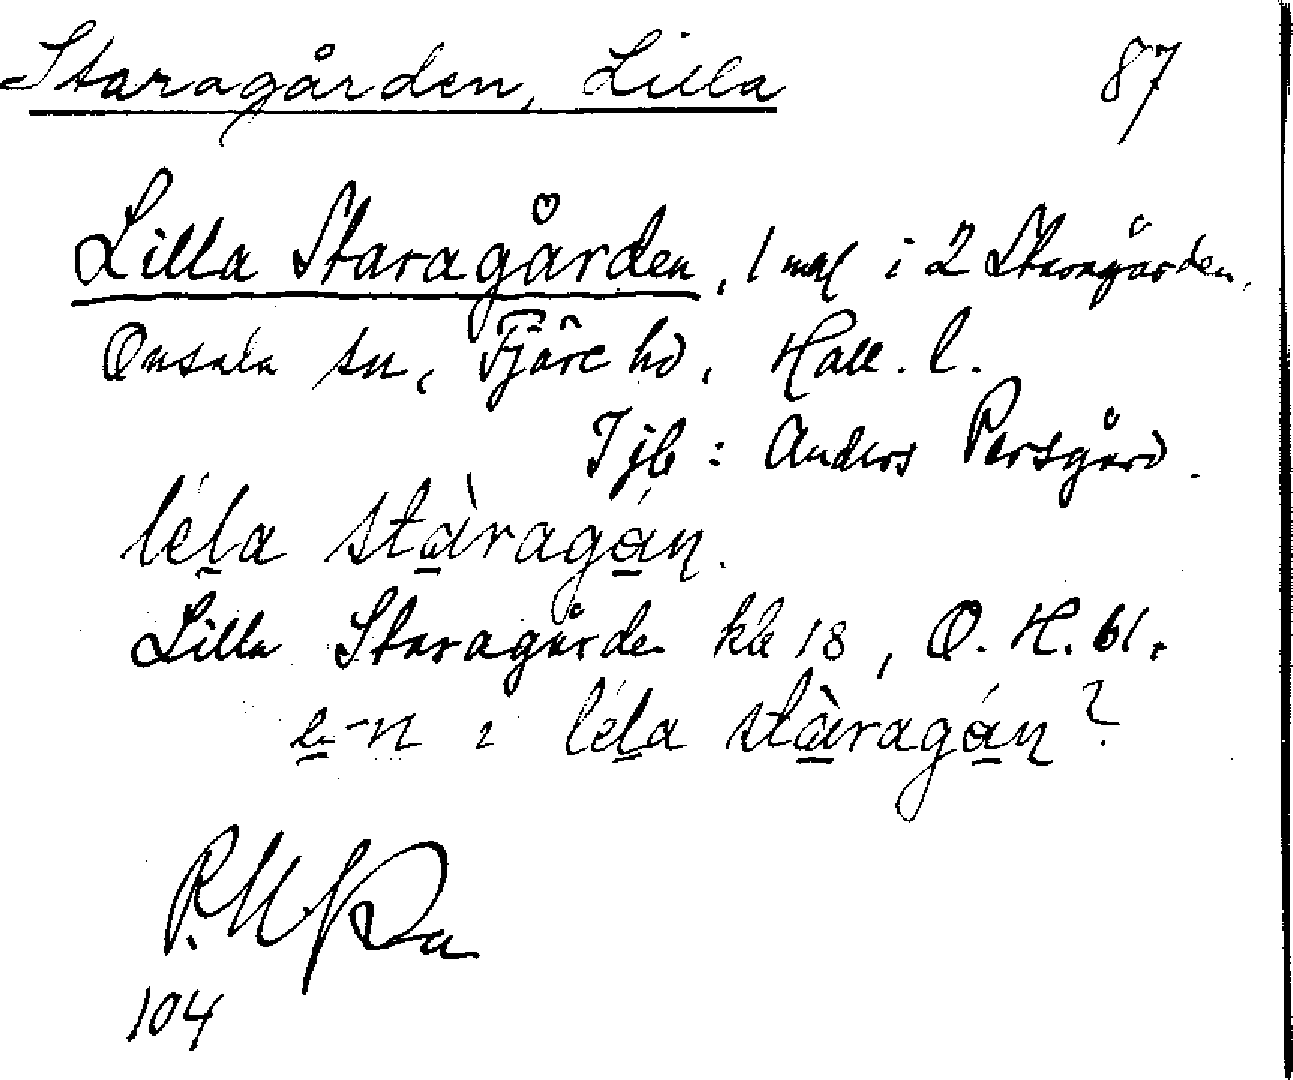 Staragården, Lilla 87
Lilla Staragården, 1 mtl i 2 Staragården,
Onsala sn, Fjäre hd, Hall. l.
Tjb: Anders Persgård.
léla stàragáṇ.
Lilla Staragården kb 18, O. H. bl.
e-n : léla stàragáṇ?
104